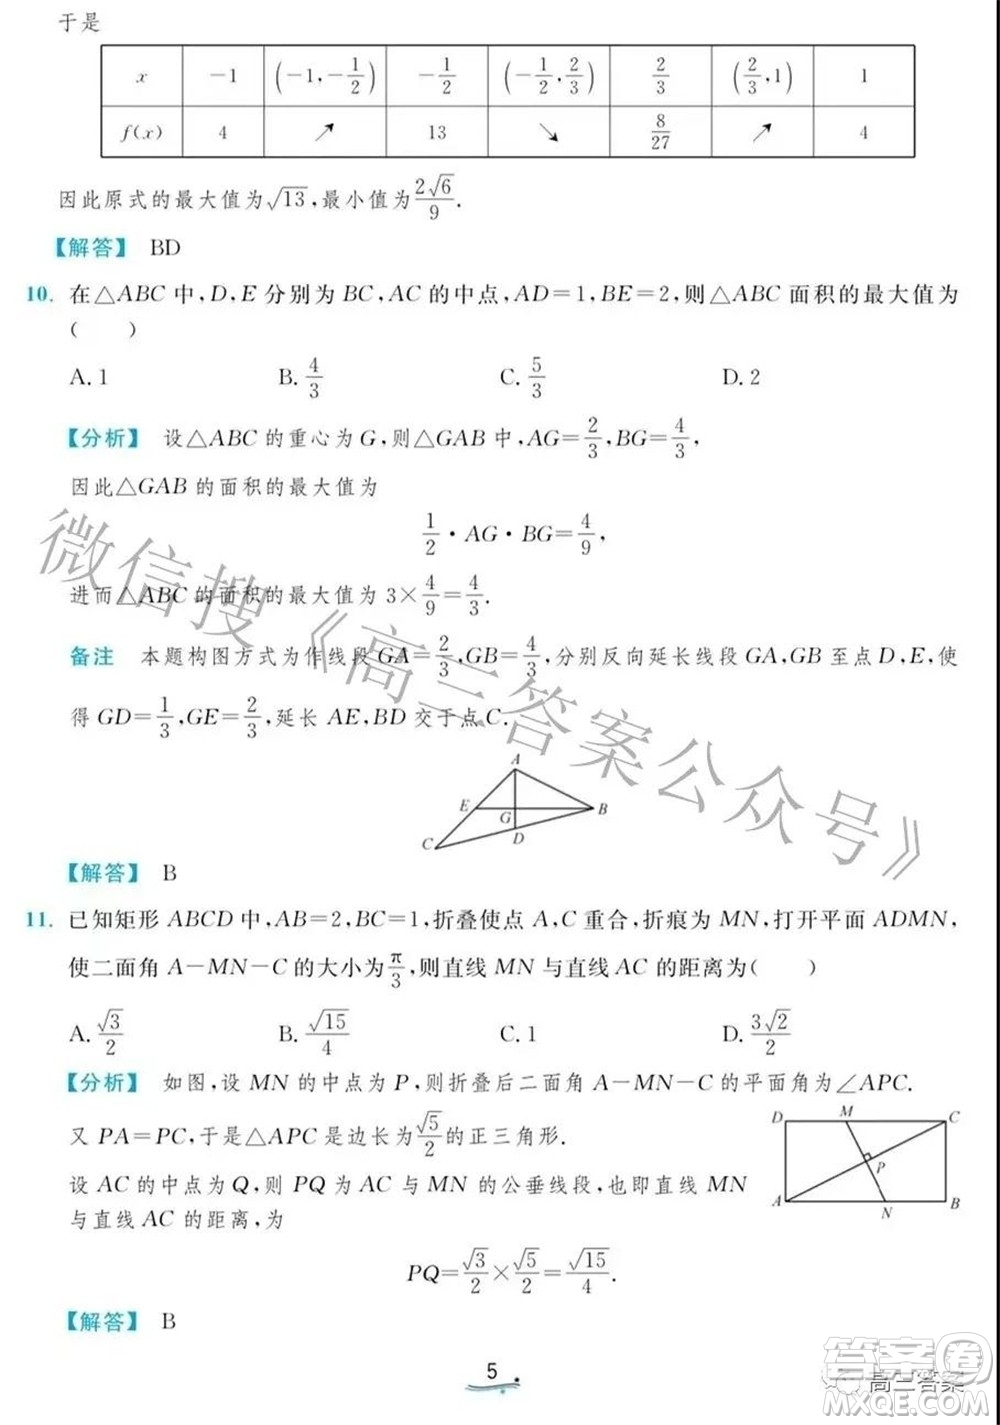 于是
x −1 (−1,−1/2) −1/2 (−1/2,2/3) 2/3 (2/3,1) 1
f(x) 4 ↗ 13 ↘ 8/27 ↗ 4
因此原式的最大值为√13,最小值为2√6/9.
【解答】 BD
10. 在△ABC中,D,E分别为BC,AC的中点,AD=1,BE=2,则△ABC面积的最大值为
( )
A. 1 B. 4/3 C. 5/3 D. 2
【分析】 设△ABC的重心为G,则△GAB中,AG=2/3,BG=4/3,
因此△GAB的面积的最大值为
1/2·AG·BG=4/9,
进而△ABC的面积的最大值为3×4/9=4/3.
备注 本题构图方式为作线段GA=2/3,GB=4/3,分别反向延长线段GA,GB至点D,E,使
得GD=1/3,GE=2/3,延长AE,BD交于点C.
A
E G B
C D
【解答】 B
11. 已知矩形ABCD中,AB=2,BC=1,折叠使点A,C重合,折痕为MN,打开平面ADMN,
使二面角A−MN−C的大小为π/3,则直线MN与直线AC的距离为( )
A. √3/2 B. √15/4 C. 1 D. 3√2/2
【分析】 如图,设MN的中点为P,则折叠后二面角A−MN−C的平面角为∠APC.
又PA=PC,于是△APC是边长为√5/2的正三角形.
设AC的中点为Q,则PQ为AC与MN的公垂线段,也即直线MN
与直线AC的距离,为
D M C
P
A N B
PQ=√3/2×√5/2=√15/4.
【解答】 B
5
微信搜《高三答案公众号》
答案卷
高三答案
MXQE.COM